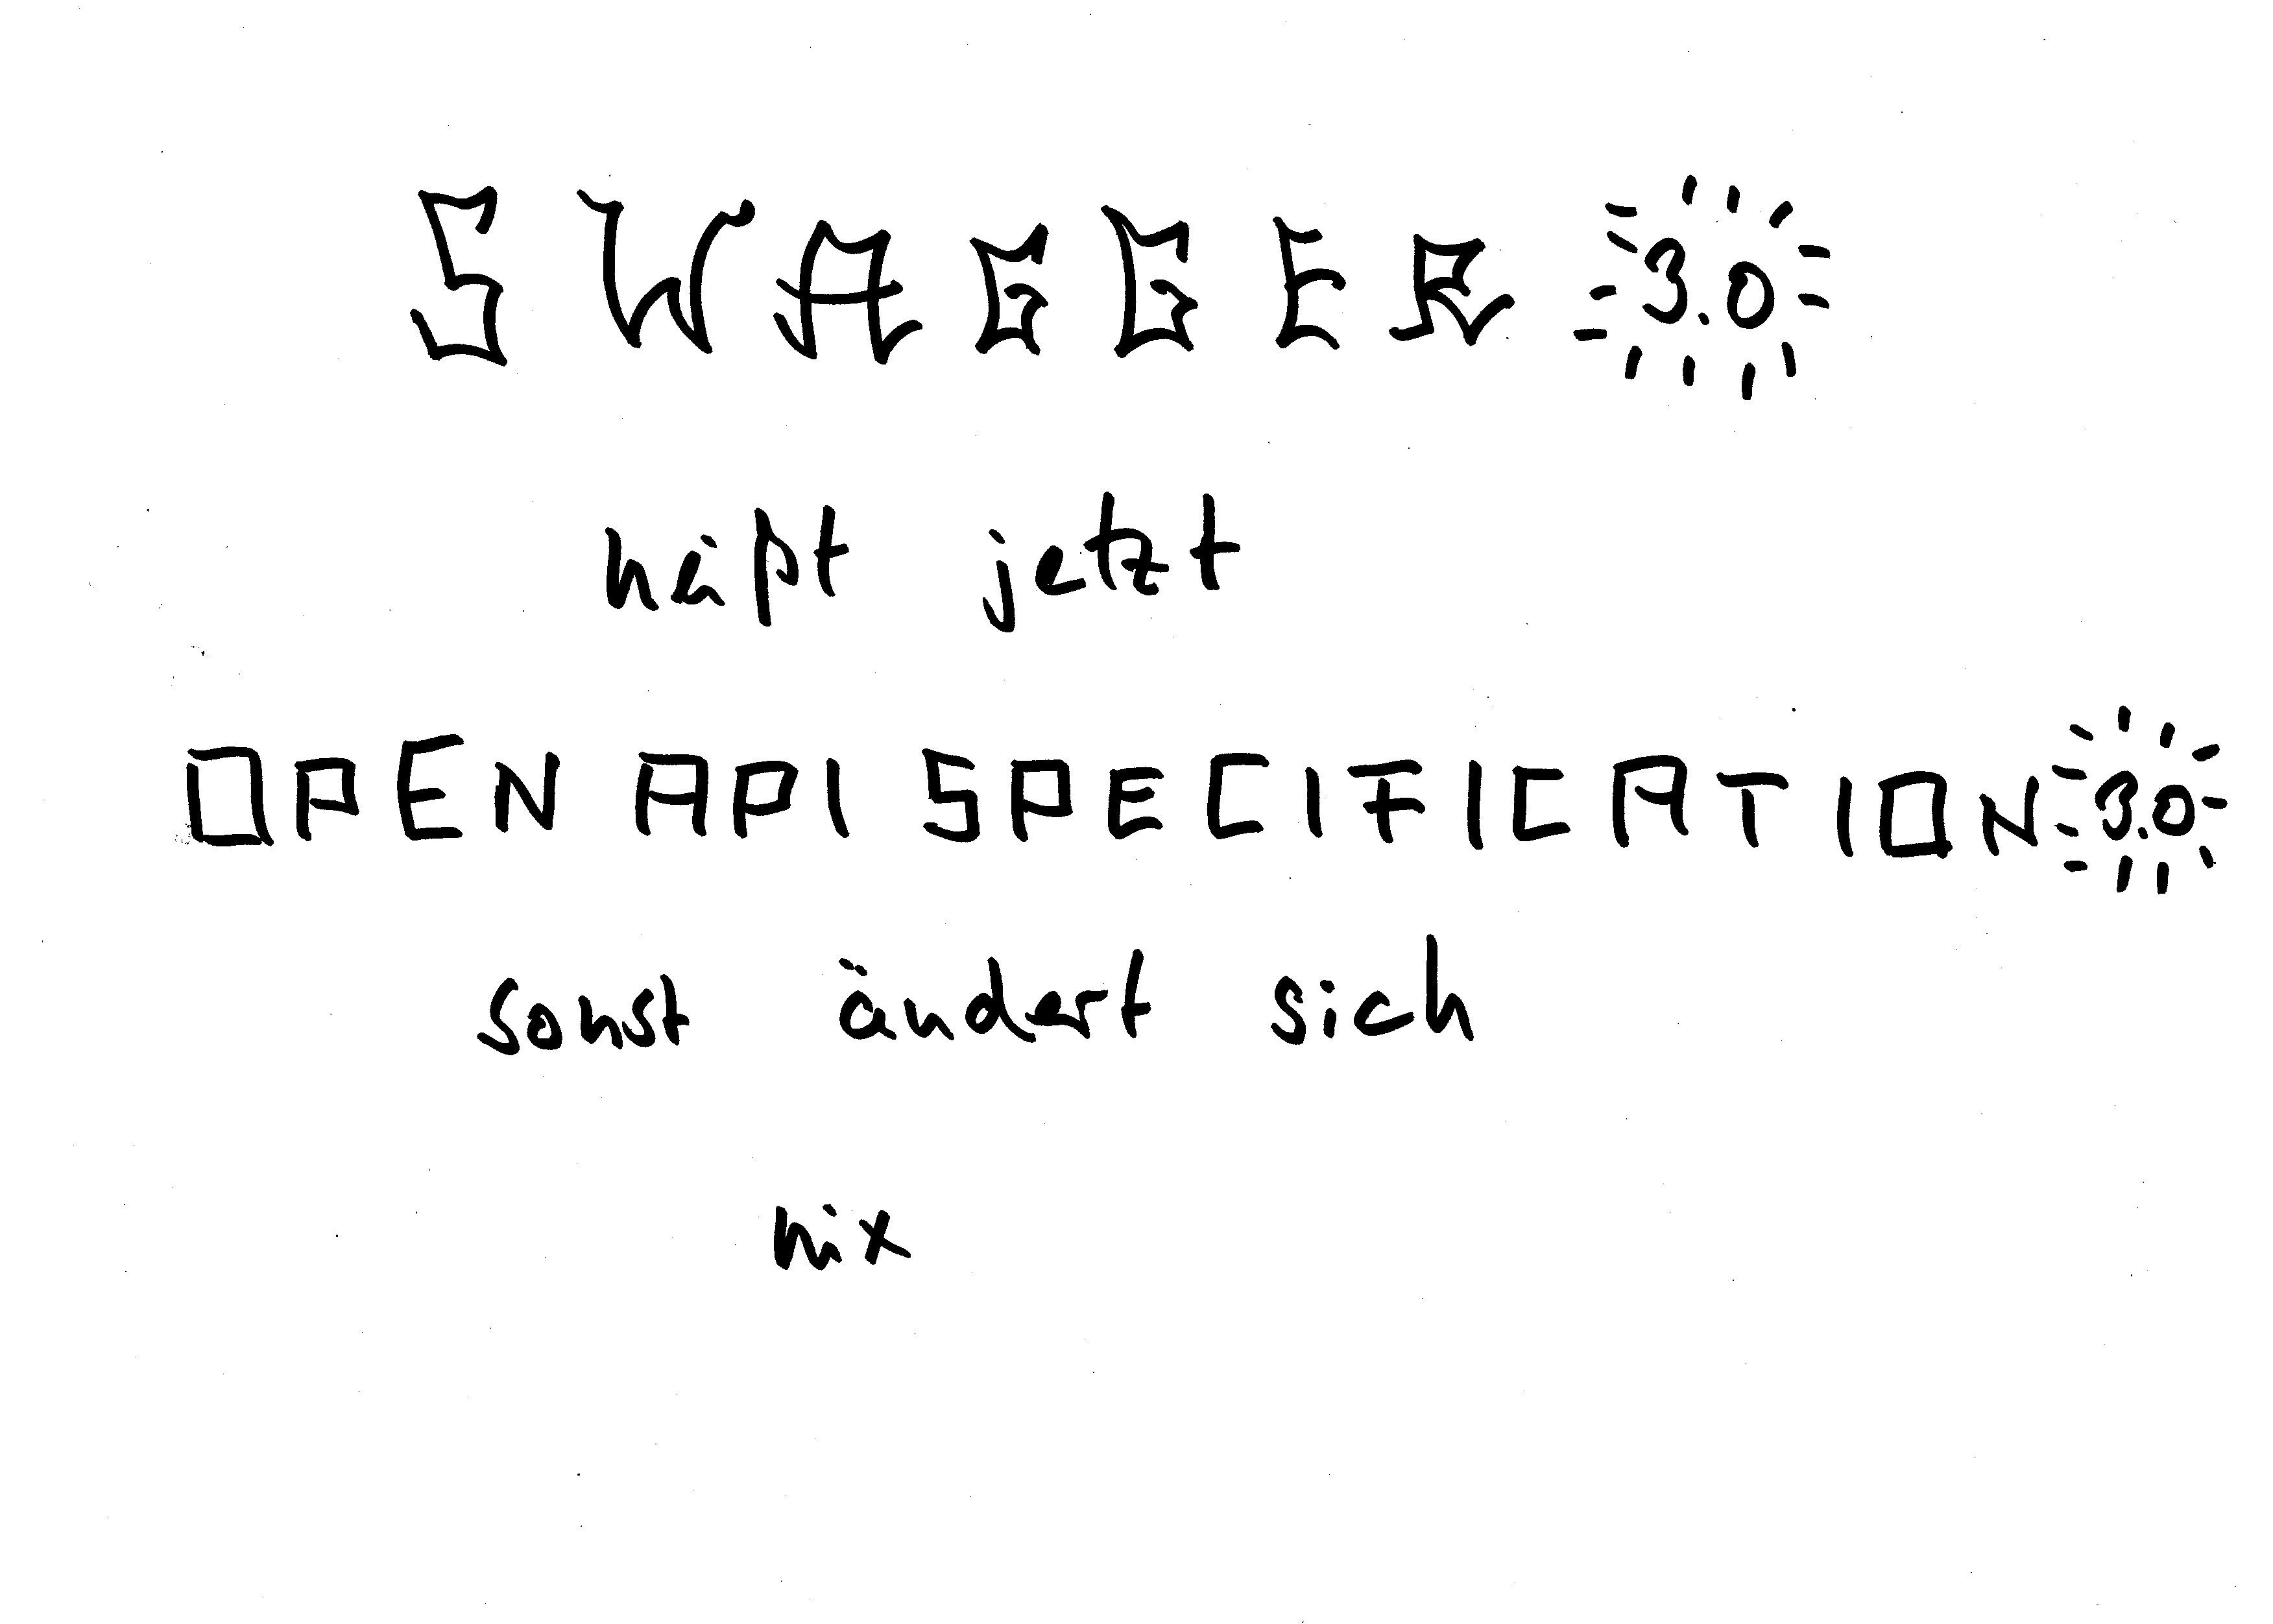 SWAGGER 3.0
heißt jetzt
OPEN API SPECIFICATION 3.0
sonst ändert sich
nix